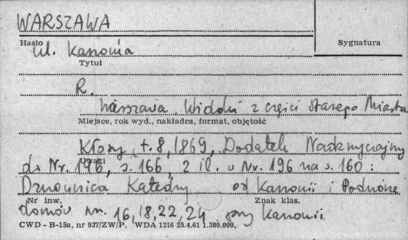 WARSZAWA
Hasło
Sygnatura
ul. Kanonia
Tytuł
R.
Warszawa. Widoki z części Starego Miasta
Miejsce, rok wyd., nakładca, format, objętość
Kłosy, t. 8, 1869, Dodatek Nadzwyczajny
Uwagi
do Nr. 196, s. 166 2 il. w Nr. 196 na s. 160:
Dzwonnica Katedry od Kanonii i
Nr inw.
Znak klas.
domów nr. 16, 18, 22, 24 przy Kanonii
CWD - B-15a, nr 937/ZW/P, WDA 1216 25.4.61 1.380.000.